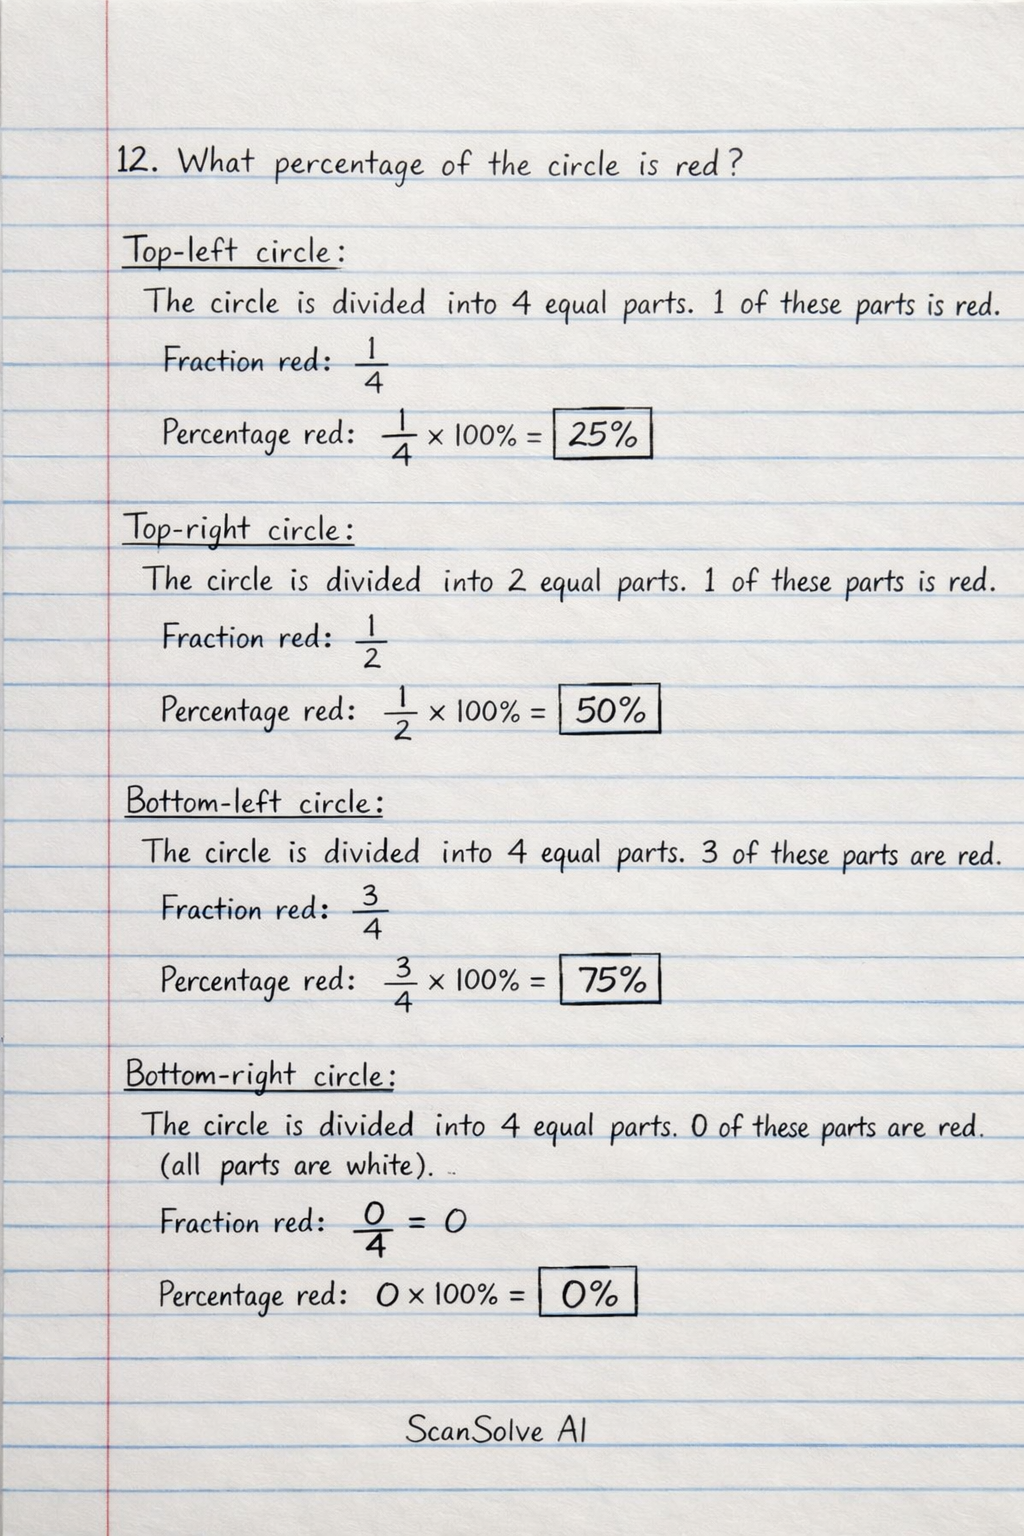 12. What percentage of the circle is red?
Top-left circle:
The circle is divided into 4 equal parts. 1 of these parts is red.
Fraction red: 1/4
Percentage red: 1/4 × 100% = 25%
Top-right circle:
The circle is divided into 2 equal parts. 1 of these parts is red.
Fraction red: 1/2
Percentage red: 1/2 × 100% = 50%
Bottom-left circle:
The circle is divided into 4 equal parts. 3 of these parts are red.
Fraction red: 3/4
Percentage red: 3/4 × 100% = 75%
Bottom-right circle:
The circle is divided into 4 equal parts. 0 of these parts are red.
(all parts are white).
Fraction red: 0/4 = 0
Percentage red: 0 × 100% = 0%
ScanSolve AI